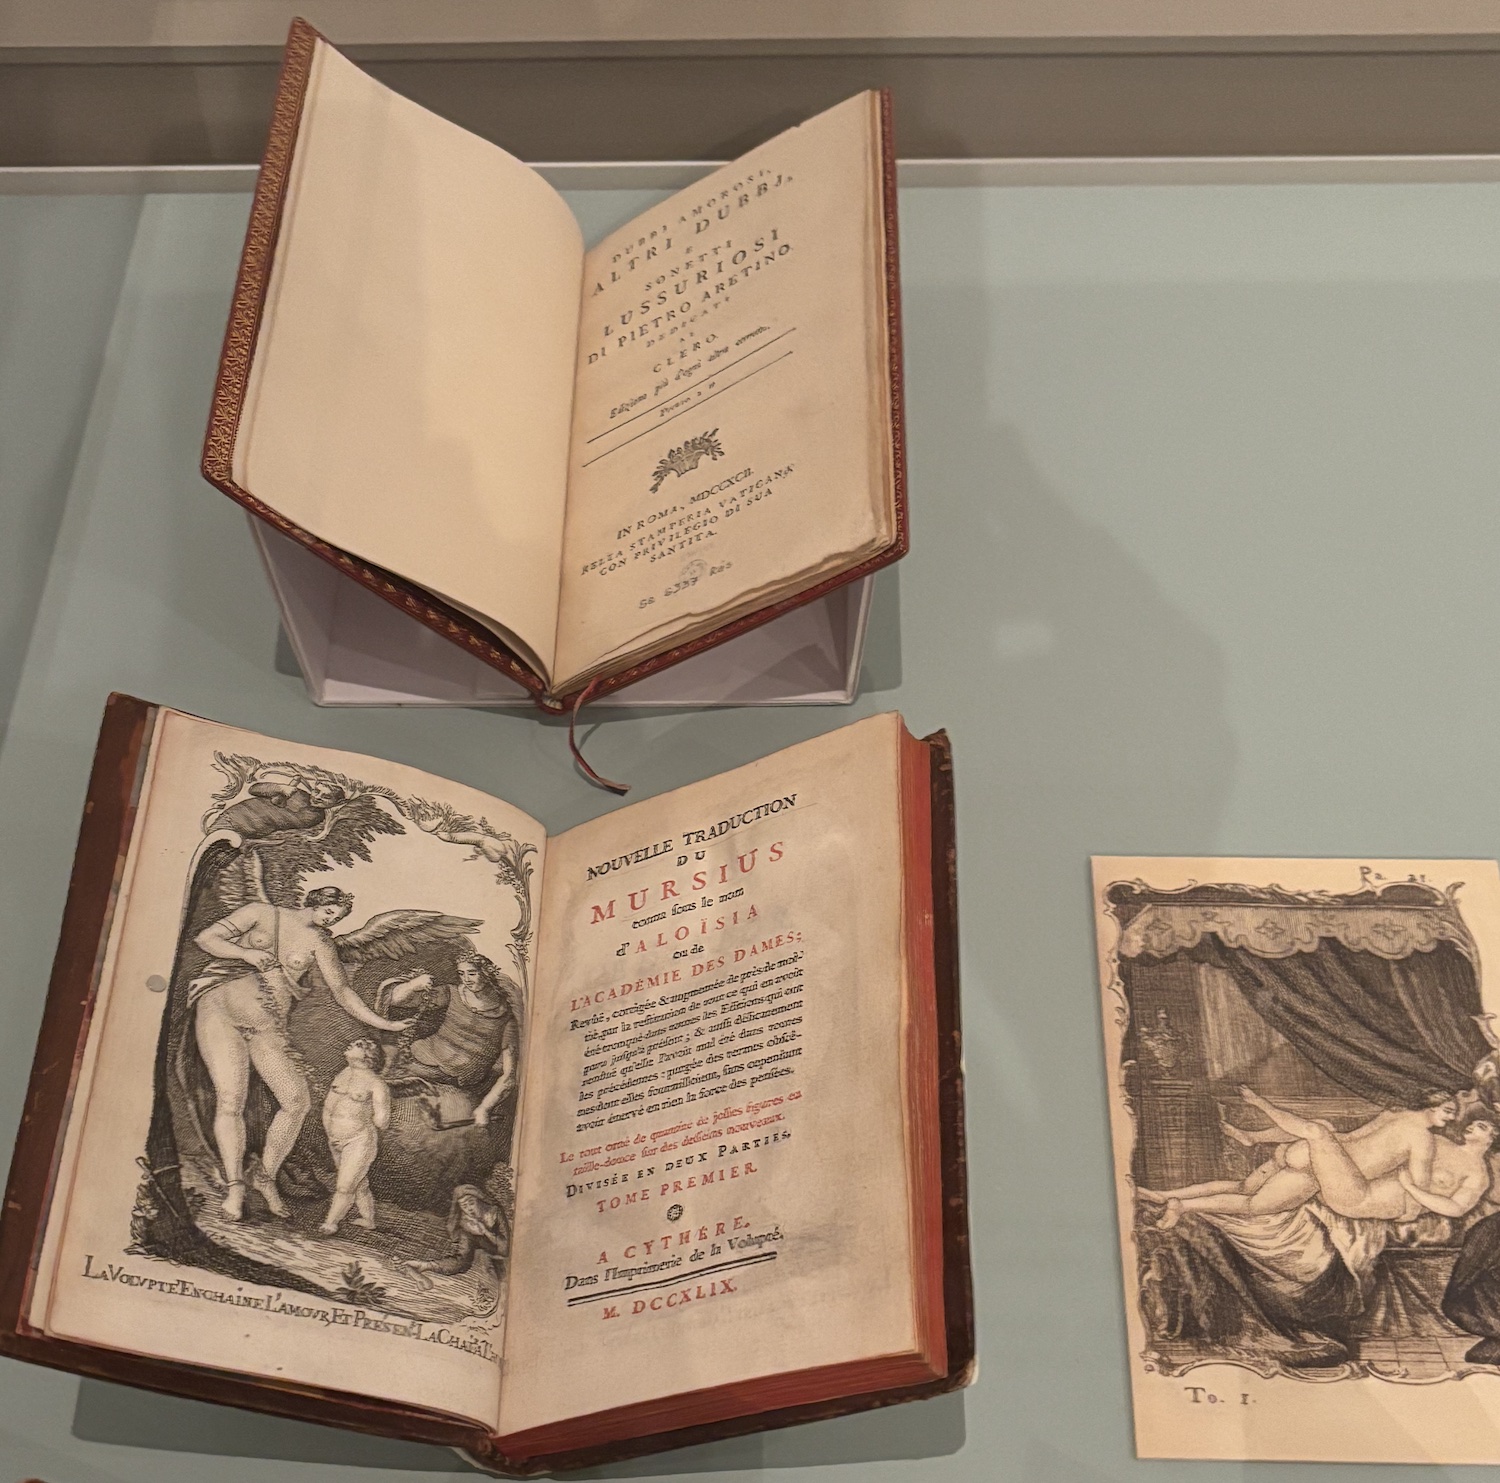 DUBBI AMOROSI,
ALTRI DUBBJ,
E
SONETTI
LUSSURIOSI
DI PIETRO ARETINO.
DEDICATI
AL
CLERO.
Edizione più d'ogni altra corretta.
IN ROMA, MDCCXCII.
NELLA STAMPERIA VATICANA
CON PRIVILEGIO DI SUA
SANTITA.
NOUVELLE TRADUCTION
DU
MURSIUS
connu sous le nom
d'ALOÏSIA
ou de
L'ACADÉMIE DES DAMES;
Revûë, corrigée & augmentée de près de moi-
tié, par la restitution de tout ce qui en avoit
été tronqué dans toutes les Editions qui ont
paru jusqu'à présent; & aussi délicatement
renduë qu'elle l'avoit mal été dans toutes
les précédentes: purgée des termes obscé-
nes dont elles fourmilloient, sans cependant
avoir énervé en rien la force des pensées.
Le tout orné de quantité de jolies figures en
taille-douce sur des desseins nouveaux.
DIVISÉE EN DEUX PARTIES.
TOME PREMIER.
A CYTHÉRE.
Dans l'Imprimerie de la Volupté.
M. DCCXLIX.
LA VOLVPTÉ ENCHAINE L'AMOVR, ET PRESEN
Pa. 21.
To. 1.